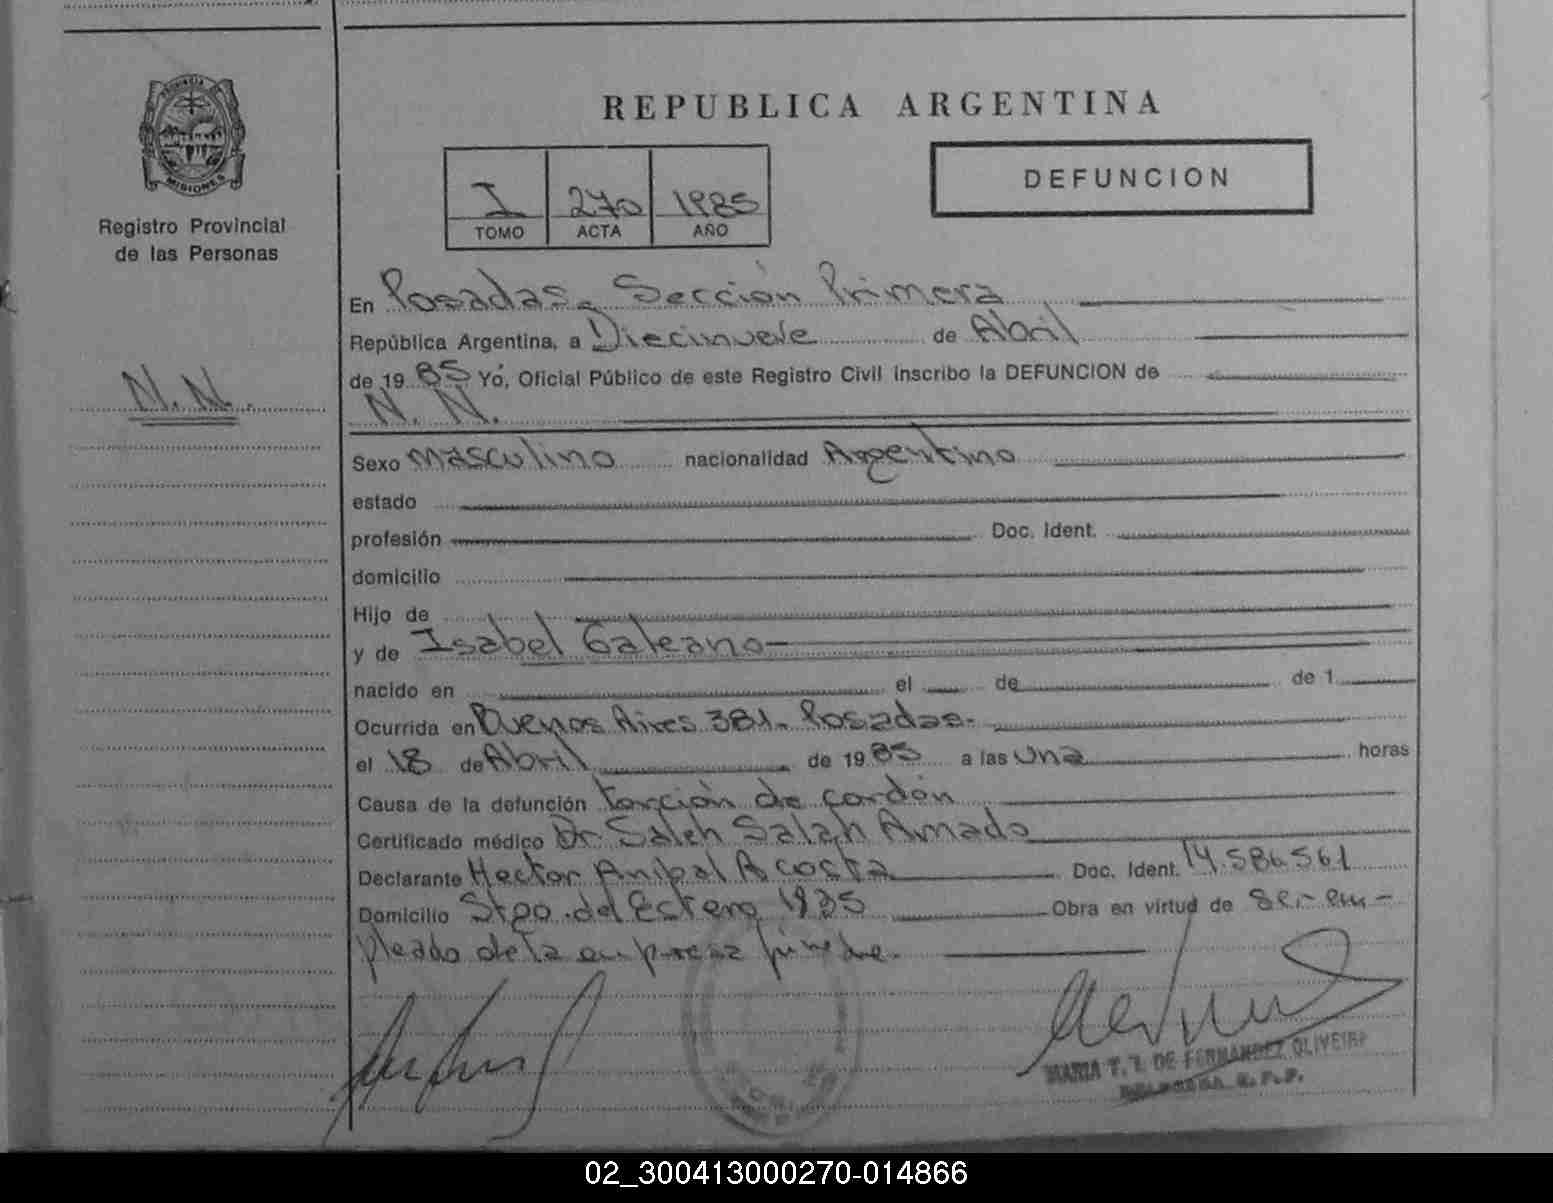 PROVINCIA
MISIONES
Registro Provincial
de las Personas
N. N.
REPUBLICA ARGENTINA
I 270 1985
TOMO ACTA AÑO
DEFUNCION
En Posadas. Sección Primera
República Argentina, a Diecinueve de Abril
de 1985 Yo, Oficial Público de este Registro Civil inscribo la DEFUNCION de
N. N.
Sexo Masculino nacionalidad Argentino
estado
profesión Doc. Ident.
domicilio
Hijo de
y de Isabel Galeano
nacido en el de de 1
Ocurrida en Buenos Aires 381. Posadas.
el 18 de Abril de 1985 a las una horas
Causa de la defunción torción de cordón
Certificado médico Dr. Saleh Salah Amado
Declarante Hector Anibal Acosta Doc. Ident. 14.586.561
Domicilio Stgo. del Estero 1935 Obra en virtud de ser em-
pleado de la empresa fúnebre.
MARIA T. I. DE FERNANDEZ OLIVEIRA
02_300413000270-014866